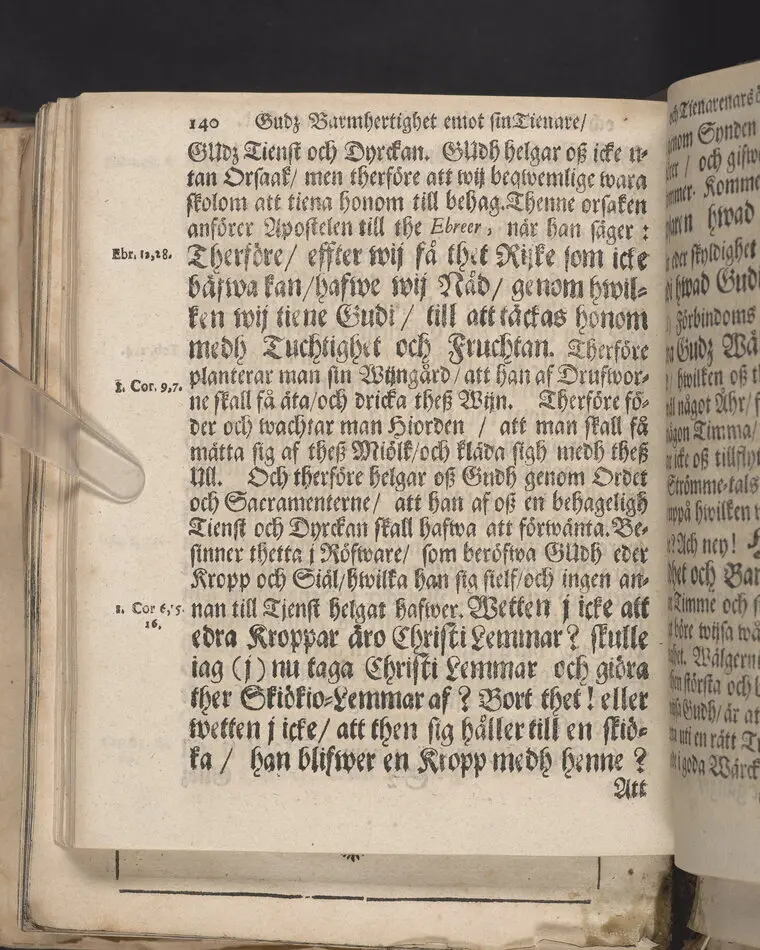 140 Gudz Barmhertighet emot sin Tienare/
GUdz Tienst och Dyrckan. GUdh helgar oß icke u-
tan Orsaak/ men therföre att wij beqwemlige wara
skolom att tiena honom till behag. Thenne orsaken
anförer Apostelen till the Ebreer, när han säger:
Ebr. 12,28.
Therföre/ effter wij få thet Rijke som icke
bäfwa kan/hafwe wij Nåd/ genom hwil-
ken wij tiene Gudi/ till att täckas honom
medh Tuchtighet och Fruchtan. Therföre
1. Cor. 9,7.
planterar man sin Wijngård/ att han af Drufwor-
ne skall få äta/och dricka theß Wijn. Therföre fö-
der och wachtar man Hiorden / att man skall få
mätta sig af theß Miölk/och kläda sigh medh theß
Ull. Och therföre helgar oß Gudh genom Ordet
och Sacramenterne/ att han af oß en behageligh
Tienst och Dyrckan skall hafwa att förwänta. Be-
sinner thetta j Röfware/ som beröfwa GUdh eder
Kropp och Siäl/hwilka han sig sielf/och ingen an-
1. Cor 6,15.
16.
nan till Tjenst helgat hafwer. Wetten j icke att
edra Kroppar äro Christi Lemmar? skulle
iag (j) nu taga Christi Lemmar och giöra
ther Skiökio-Lemmar af? Bort thet! eller
wetten j icke/ att then sig håller till en skiö-
ka/ han blifwer en Kropp medh henne?
Att
och Tienarenars
nom Synden
/ och gifw
Komme
hwad
skyldighet
hwad Gudi
Förbindoms
Gudz Wä
hwilken oß t
något Åhr/ f
Timma/
icke oß tillfly
Strömme-tals
uppå hwilken
? Ach ney!
och Bar
Timme och
wijsa wå
Wälgern
största och
Gudh/ är at
uti en rätt T
goda Wärck